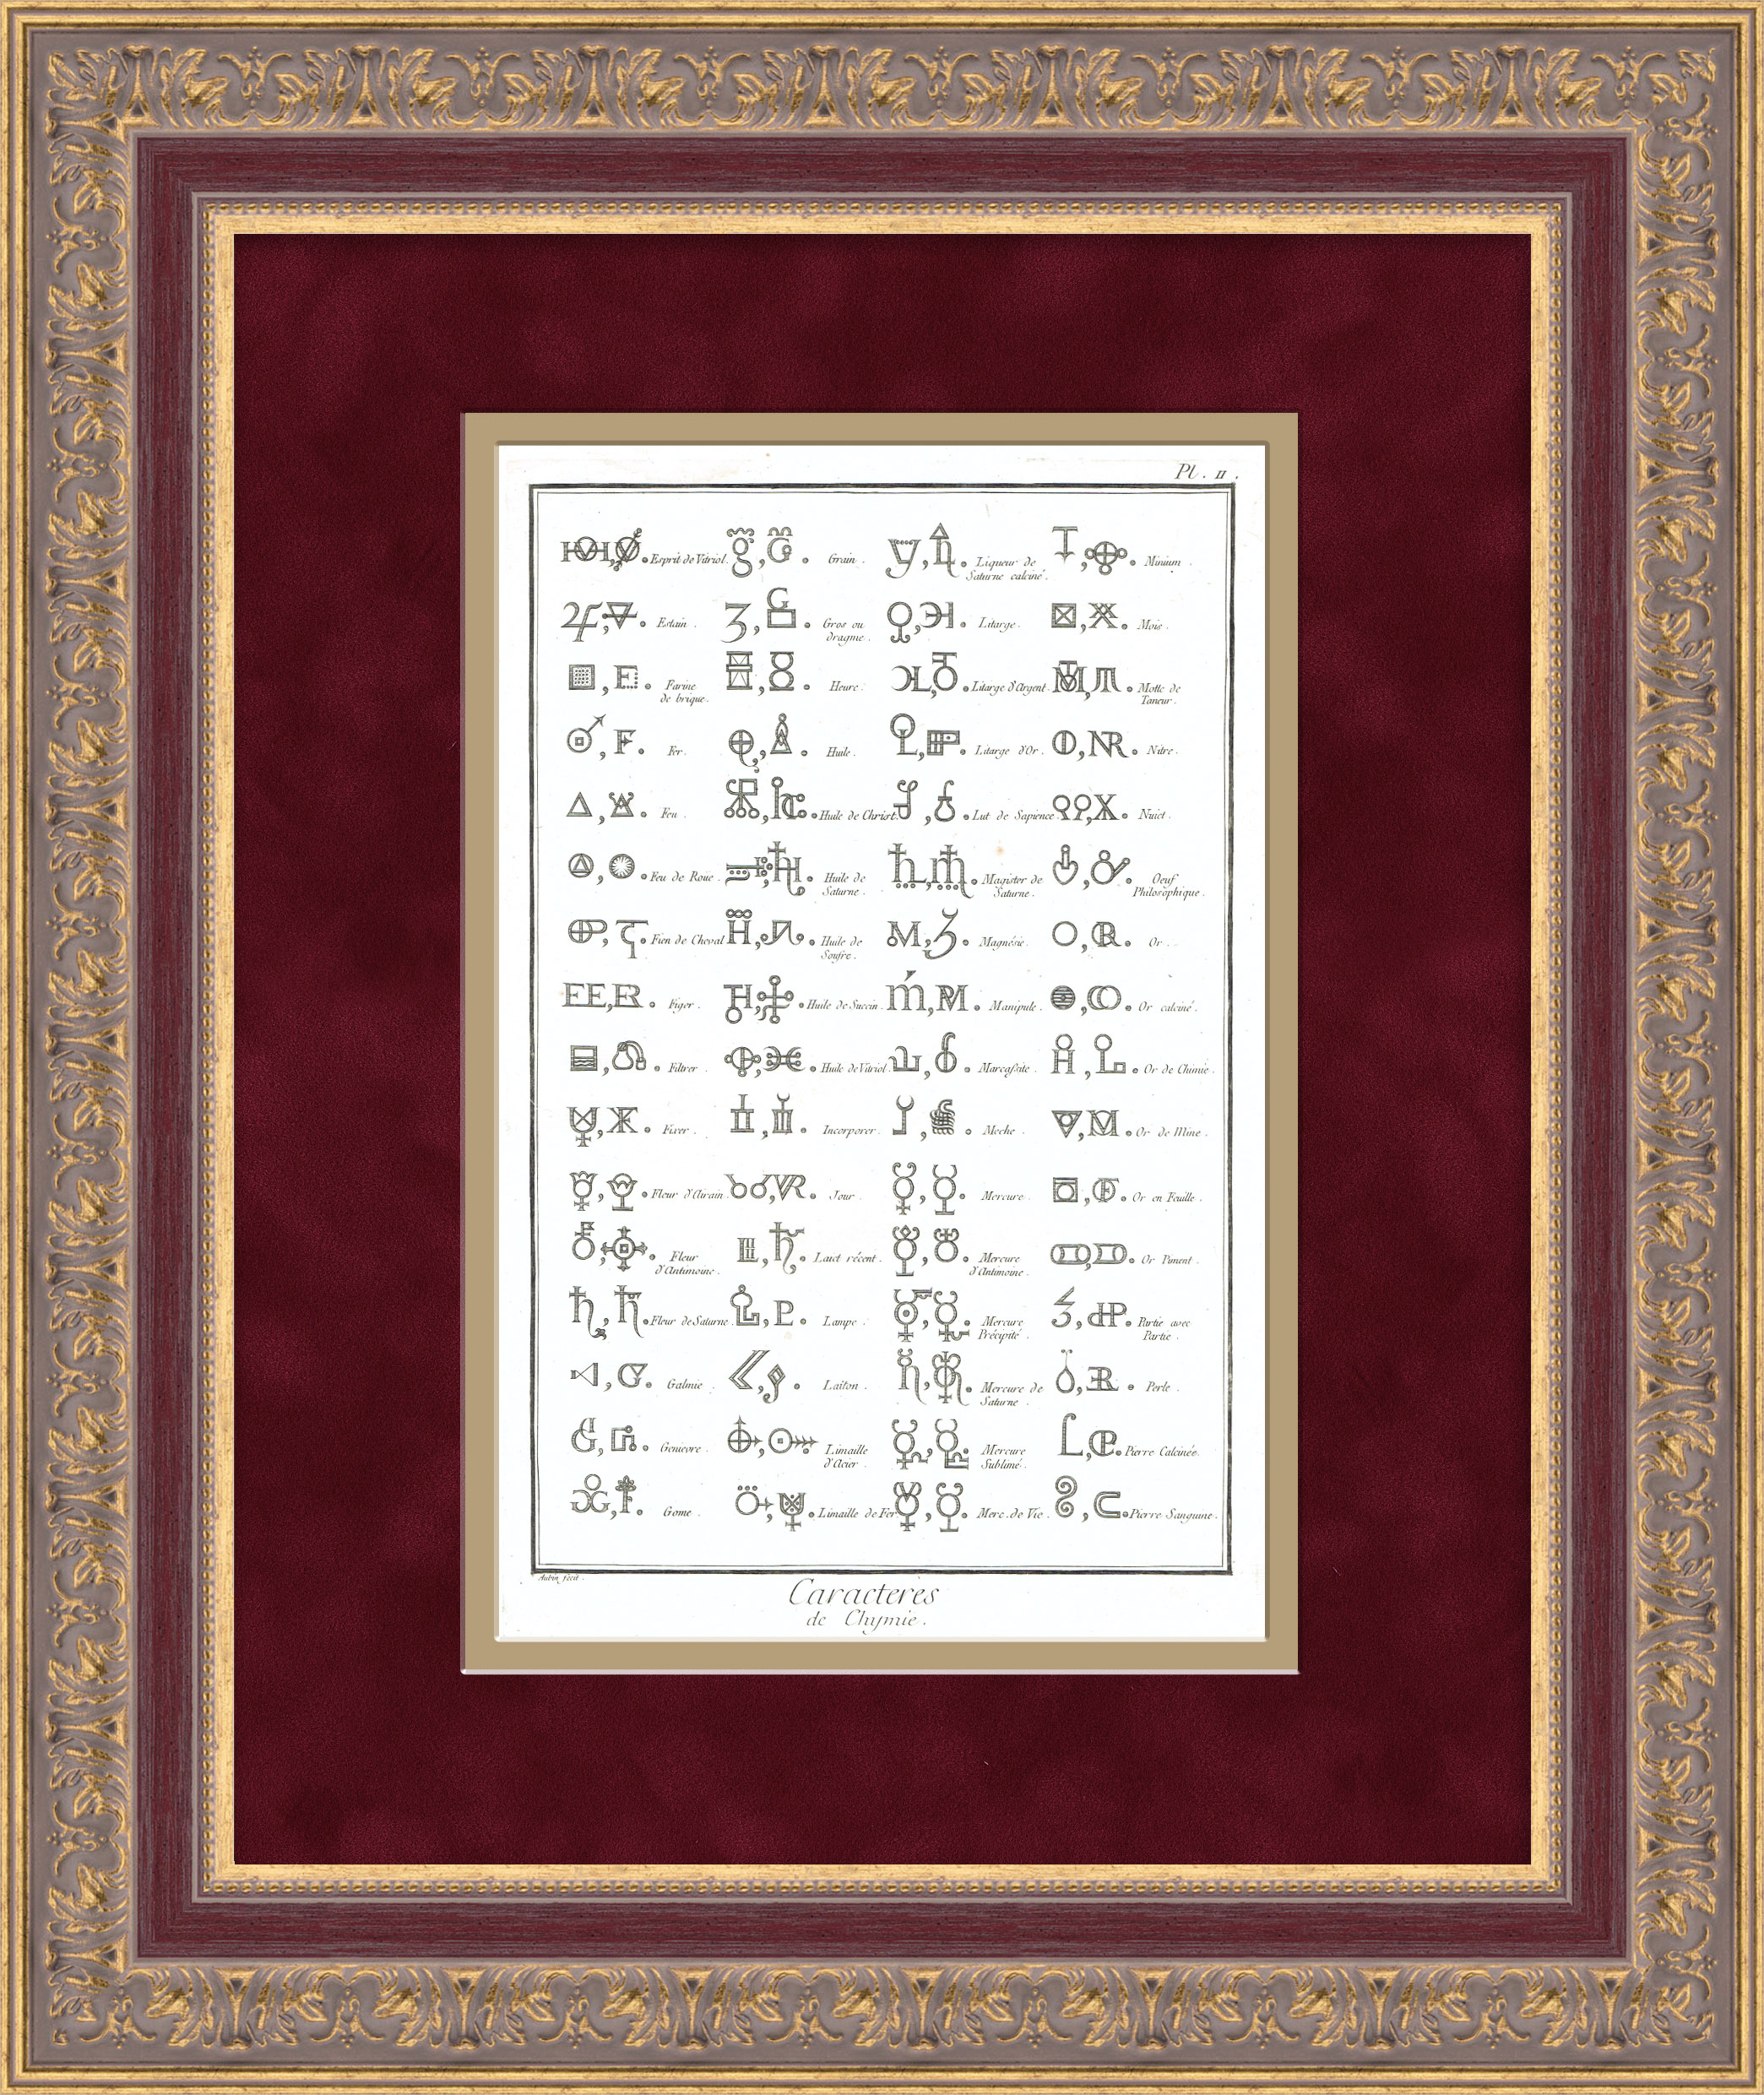 Pl. II.
Esprit de Vitriol.
Estain.
Farine
de brique.
Fer.
Feu.
Feu de Roüe.
Fien de Cheval
Figer.
Filtrer.
Fixer.
Fleur d'Airain.
Fleur
d'Antimoine.
Fleur de Saturne.
Galmie.
Genievre.
Gome.
Grain.
Gros ou
dragme.
Heure.
Huile.
Huile de Christ.
Huile de
Saturne.
Huile de
Soufre.
Huile de Succin.
Huile de Vitriol.
Incorporer.
Jour.
Laict récent.
Lampe.
Laiton.
Limaille
d'Acier.
Limaille de Fer
Liqueur de
Saturne calciné.
Litarge.
Litarge d'Argent.
Litarge d'Or.
Lut de Sapience.
Magister de
Saturne.
Magnésie.
Manipule.
Marcassite.
Meche.
Mercure.
Mercure
d'Antimoine.
Mercure
Précipité.
Mercure de
Saturne.
Mercure
Sublimé.
Merc. de Vie.
Minium.
Mois.
Motte de
Taneur.
Nitre.
Nuict.
Oeuf
Philosophique.
Or.
Or calciné.
Or de Chimie.
Or de Mine.
Or en Feuille.
Or Piment.
Partie avec
Partie.
Perle.
Pierre Calcinée.
Pierre Sanguine.
Aubin fecit.
Caracteres
de Chymie.